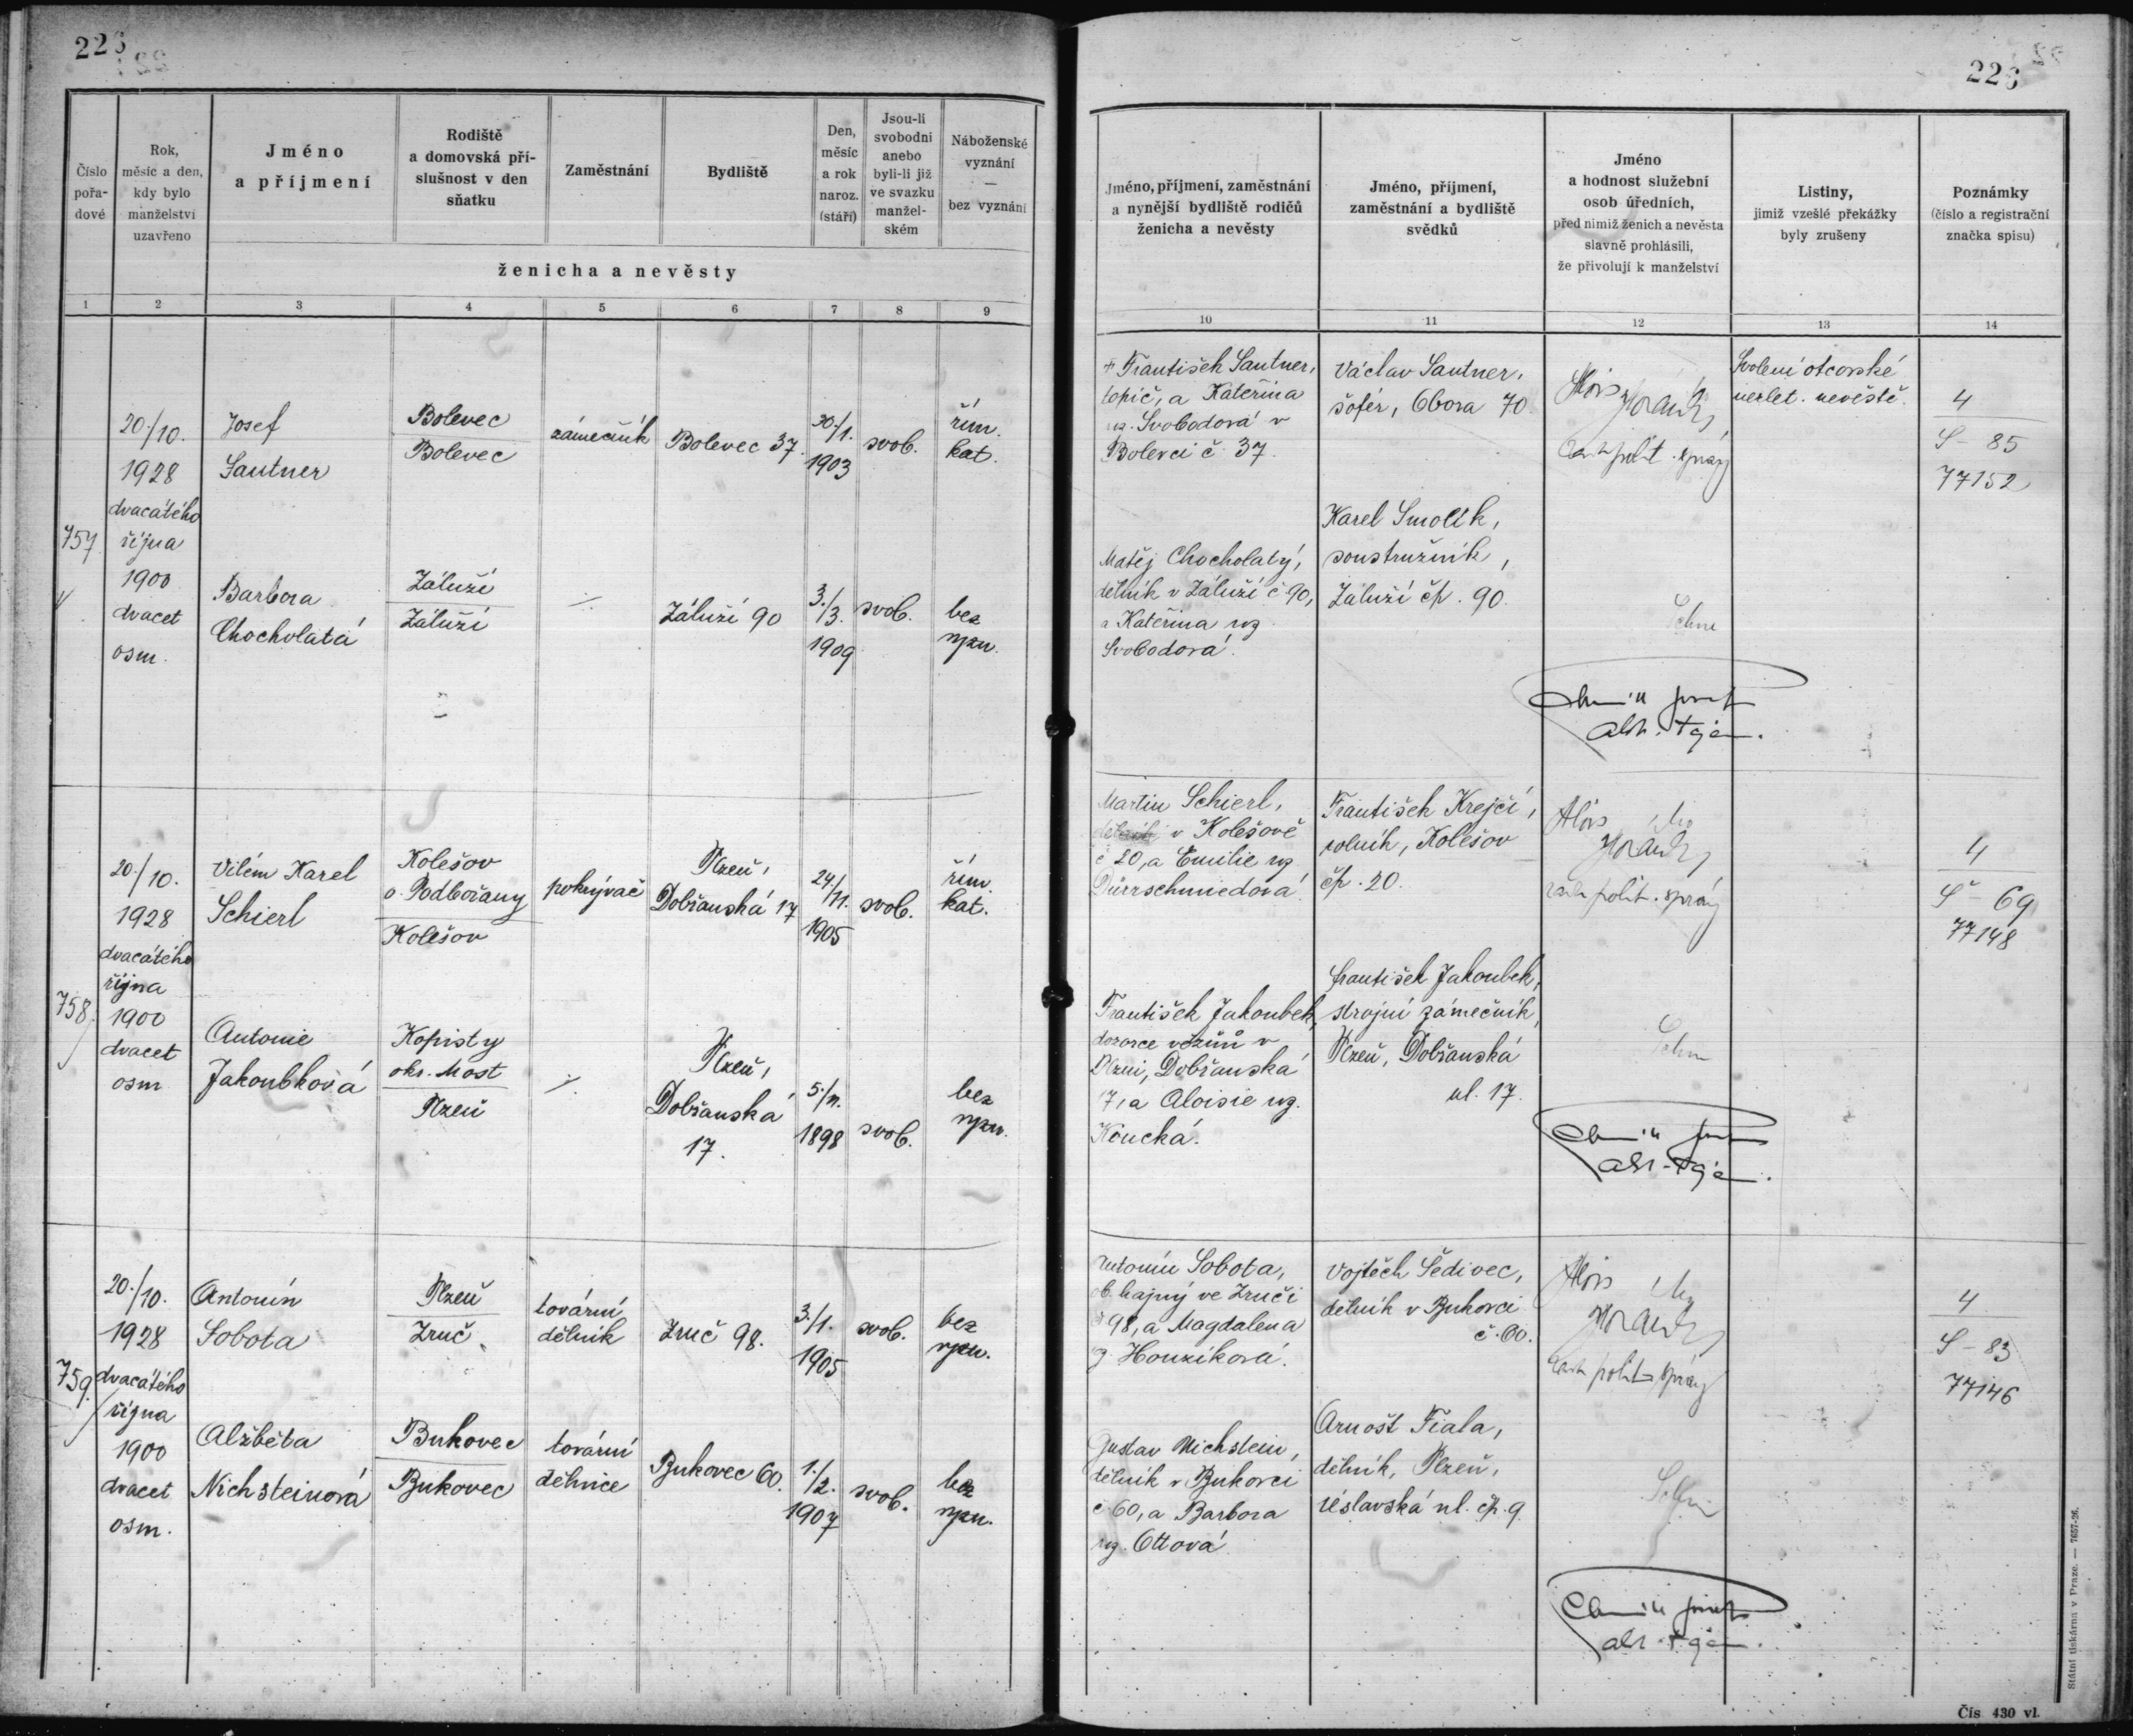 226
226
Číslo pořa-dové
Rok, měsíc a den, kdy bylo manželství uzavřeno
Jméno a příjmení
Rodiště a domovská pří-slušnost v den sňatku
Zaměstnání
Bydliště
Den, měsíc a rok naroz. (stáří)
Jsou-li svobodni anebo byli-li již ve svazku manžel-ském
Náboženské vyznání — bez vyznání
ženicha a nevěsty
1 2 3 4 5 6 7 8 9
Jméno, příjmení, zaměstnání a nynější bydliště rodičů ženicha a nevěsty
Jméno, příjmení, zaměstnání a bydliště svědků
Jméno a hodnost služební osob úředních, před nimiž ženich a nevěsta slavně prohlásili, že přivolují k manželství
Listiny, jimiž vzešlé překážky byly zrušeny
Poznámky (číslo a registrační značka spisu)
10 11 12 13 14
757
20./10.
1928
dvacátého
října
1900
dvacet
osm.
Josef
Sautner
Bolevec
Bolevec
zámečník
Bolevec 37.
30./1.
1903
svob.
řím.
kat.
Barbora
Chocholatá
Záluží
Záluží
Záluží 90
3./3.
1909
svob.
bez
vyzn.
† František Sautner,
topič, a Kateřina
roz. Svobodová v
Bolevci č 37.
Matěj Chocholatý,
dělník v Záluží č 90,
a Kateřina roz
Svobodová.
Václav Sautner,
šofér, Obora 70
Karel Smolík,
soustružník,
Záluží čp. 90.
Alois
polit. správy
Svolení otcovské
nezlet. nevěstě.
4
S - 85
77152
758.
20./10.
1928
dvacátého
října
1900
dvacet
osm
Vilém Karel
Schierl
Kolešov
o. Podbořany
Kolešov
pokrývač
Plzeň,
Dobřanská 17
24./11.
1905
svob.
řím.
kat.
Antonie
Jakoubková
Kopisty
okr. Most
Plzeň
Plzeň,
Dobřanská
17.
1898
svob.
bez
vyzn.
Martin Schierl,
v Kolešově
č 20, a Emilie roz.
Dürrschmiedová.
František Jakoubek,
dozorce vozů v
Plzni, Dobřanská
17, a Aloisie roz.
Koucká.
František Krejčí,
rolník, Kolešov
čp. 20.
František Jakoubek,
strojní zámečník,
Plzeň, Dobřanská
ul. 17.
Alois
polit. správy
4
Š - 69
77148
759.
20./10.
1928
dvacátého
října
1900
dvacet
osm.
Antonín
Sobota
Plzeň
Zruč
tovární
dělník
Zruč 98.
3./1.
1905
svob.
bez
vyzn.
Alžběta
Nichsteinová
Bukovec
Bukovec
tovární
dělnice
Bukovec 60.
1./2.
1907
svob.
bez
vyzn.
Antonín Sobota,
ob. hajný ve Zruči
č 98, a Magdalena
roz. Houzíková.
Gustav Nichstein,
dělník v Bukovci
č 60, a Barbora
roz. Ottová
Vojtěch Šedivec,
dělník v Bukovci
č. 60.
Arnošt Fiala,
dělník, Plzeň,
Úslavská ul. čp. 9
Alois
polit. správy
4
S - 83
77146
Státní tiskárna v Praze. — 7657-26.
Čís 430 vl.